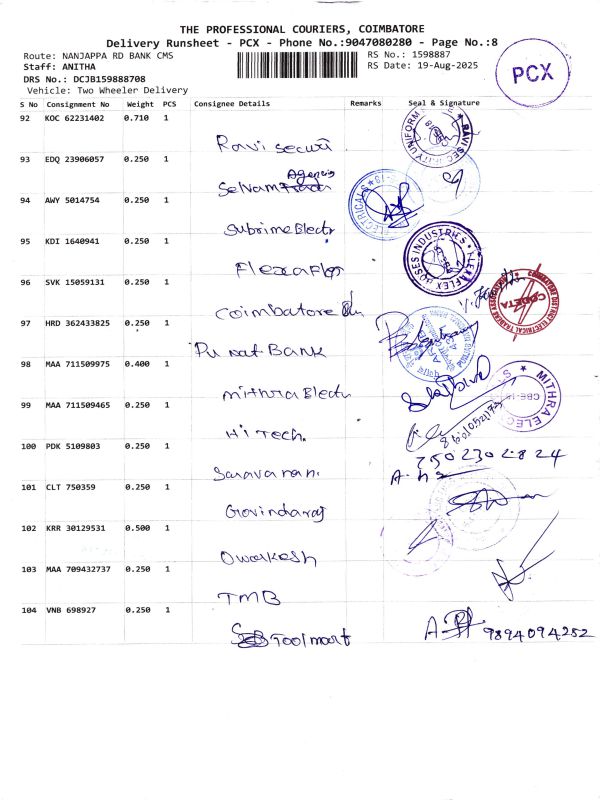 THE PROFESSIONAL COURIERS, COIMBATORE
Delivery Runsheet - PCX - Phone No.:9047080280 - Page No.:8
Route: NANJAPPA RD BANK CMS
RS No.: 1598887
Staff: ANITHA
RS Date: 19-Aug-2025
DRS No.: DCJB159888708
Vehicle: Two Wheeler Delivery
PCX
S No Consignment No Weight PCS Consignee Details Remarks Seal & Signature
92 KOC 62231402 0.710 1
Ravi Securi
93 EDQ 23906057 0.250 1
Agencis
Selvam
94 AWY 5014754 0.250 1
Subrime Electr
95 KDI 1640941 0.250 1
FlexaFlex
96 SVK 15059131 0.250 1
Coimbatore
97 HRD 362433825 0.250 1
Punat Bank
98 MAA 711509975 0.400 1
mithra Electr
99 MAA 711509465 0.250 1
Hi Tech.
100 PDK 5109803 0.250 1
7502302824
Saravanan.
101 CLT 750359 0.250 1
Govindaraj
102 KRR 30129531 0.500 1
Owarkesh
103 MAA 709432737 0.250 1
TMB
104 VNB 698927 0.250 1
Toolmart
9894094252
RAVI SECURITY UNIFORM
ELECTRICALS
FLEXAFLEX HOSES INDUSTRIES
COIMBATORE DISTRICT ELECTRICAL TRADERS ASSOCIATION
CODETA
MITHRA ELEC